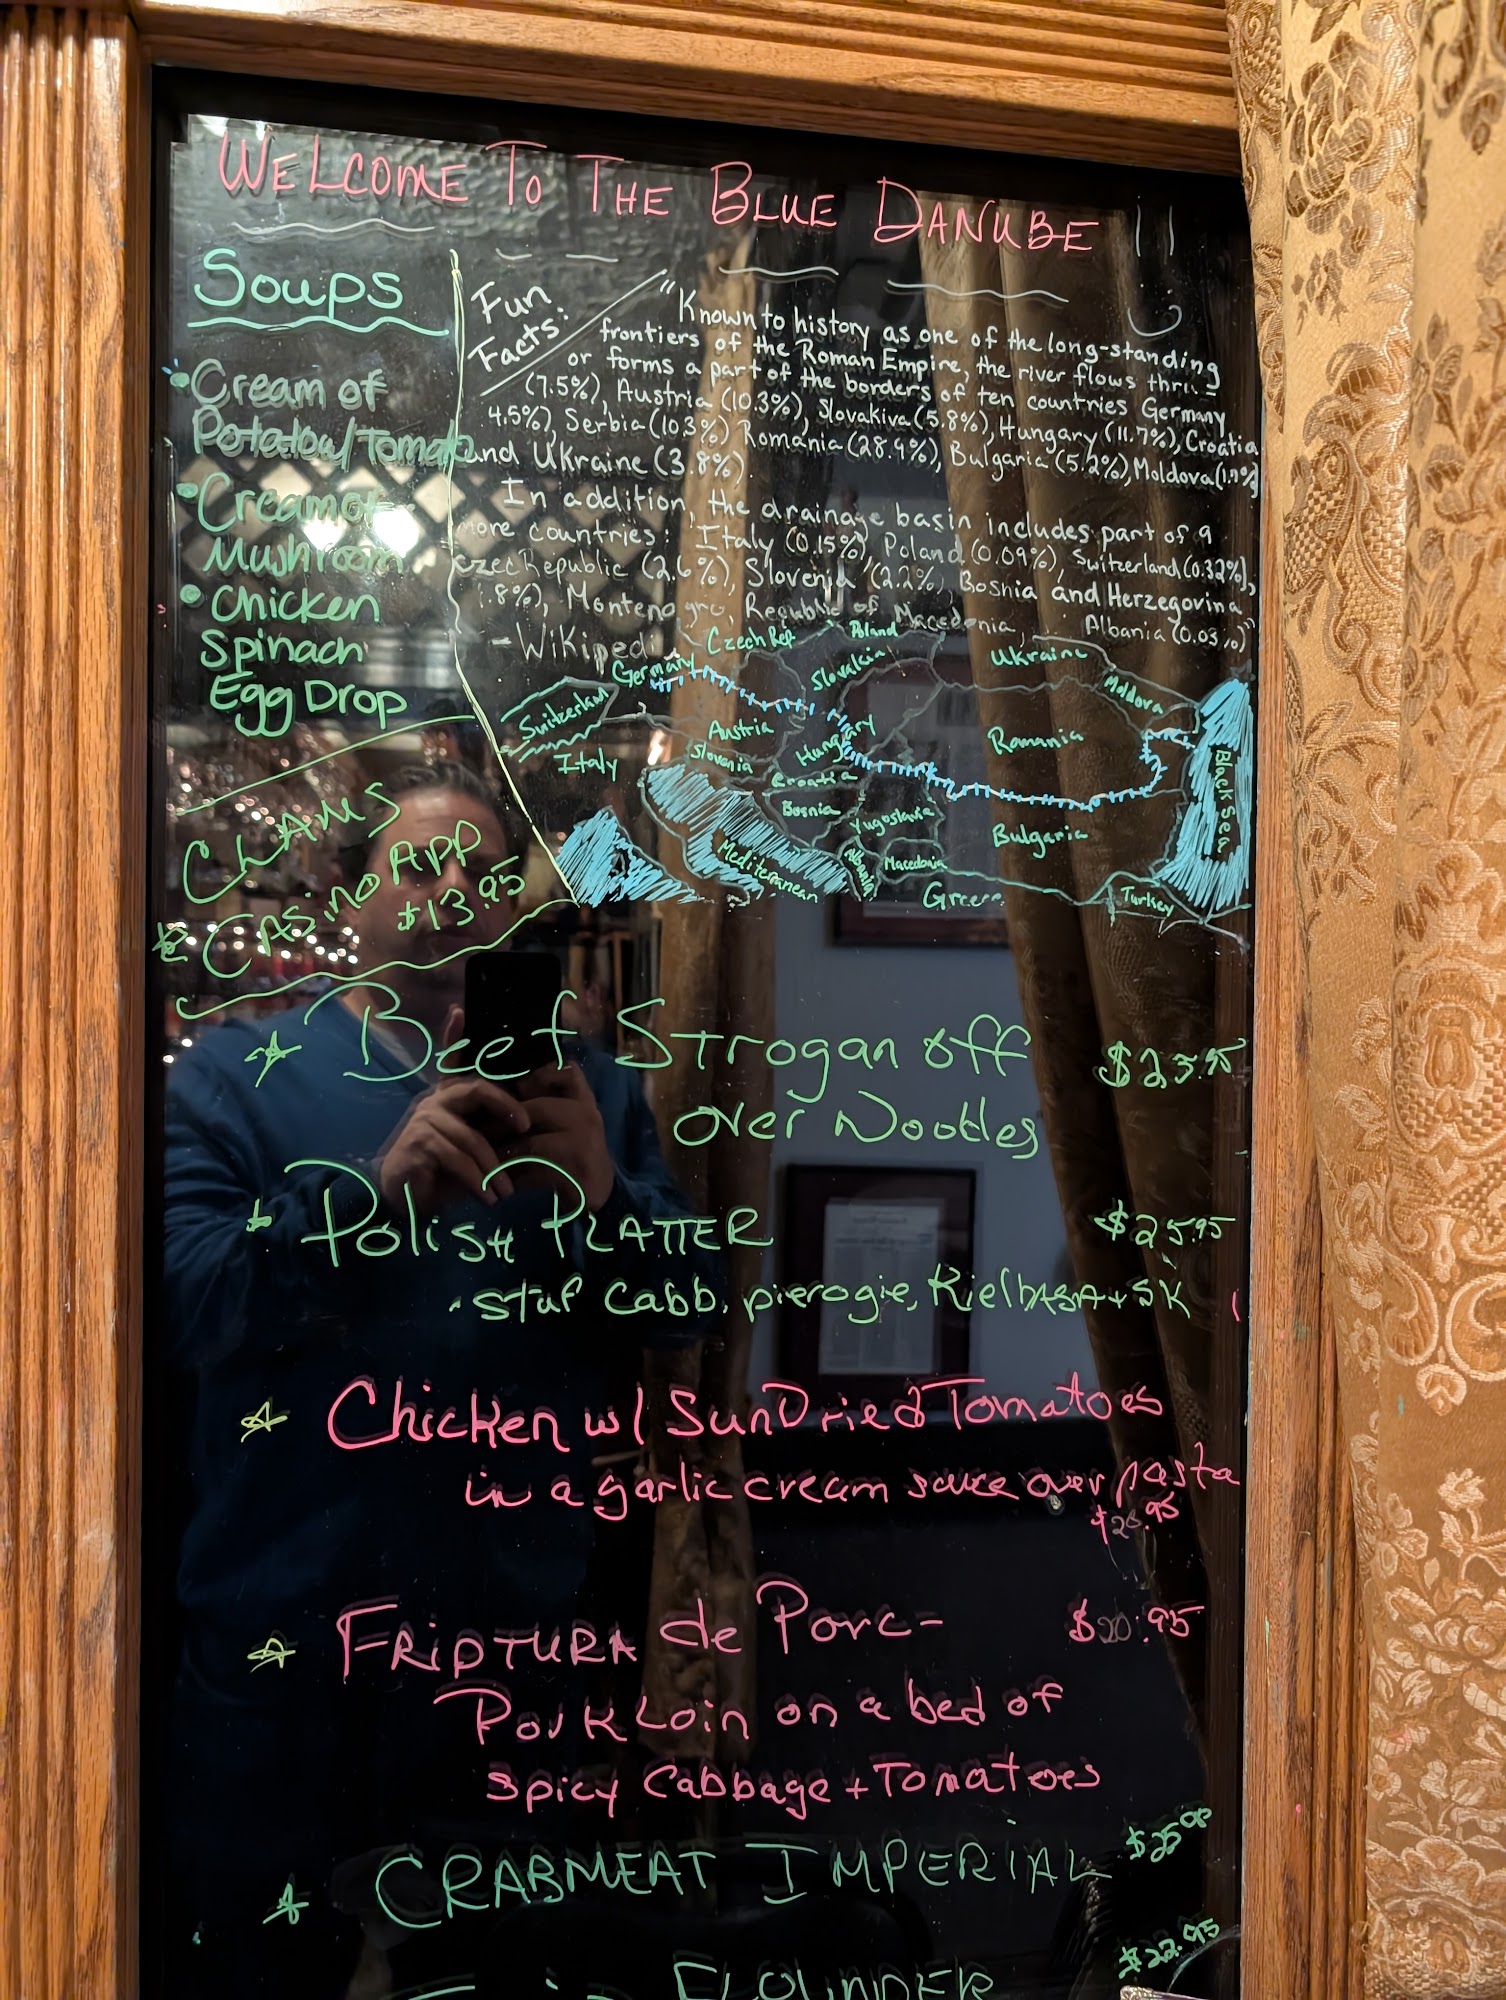 WELCOME TO THE BLUE DANUBE
Soups
Cream of
Potatoe/Tomato
Cream of
Mushroom
Chicken
Spinach
Egg Drop
CLAMS
CASINO APP
$13.95
Fun
Facts:
"Known to history as one of the long-standing
frontiers of the Roman Empire, the river flows thru
or forms a part of the borders of ten countries Germany
(7.5%), Austria (10.3%), Slovakiva (5.8%), Hungary (11.7%), Croatia
4.5%), Serbia (10.3%) Romania (28.9%), Bulgaria (5.2%), Moldova (1.7%)
and Ukraine (3.8%).
In addition, the drainage basin includes part of 9
more countries: Italy (0.15%), Poland (0.09%), Switzerland (0.32%),
Czec Republic (2.6%), Slovenia (2.2%), Bosnia and Herzegovina
.8%), Montenegro, Republic of Macedonia, Albania (0.03%)"
- Wikipedi
Czech Rep
Poland
Germany
Slovakia
Ukraine
Moldova
Switzerland
Austria
Hungary
Romania
Italy
Slovenia
Croatia
Black Sea
Bosnia
Yugoslavia
Bulgaria
Mediterranean
Albania
Macedonia
Greece
Turkey
Beef Stroganoff
over Noodles
POLISH PLATTER $25.95
stuf cabb, pierogie, Kielbasa + SK
Chicken w/ SunDried Tomatoes
in a garlic cream sauce over pasta
FRIPTURA de Porc - $20.95
Pork Loin on a bed of
spicy Cabbage + Tomatoes
CRABMEAT IMPERIAL
FLOUNDER $22.95